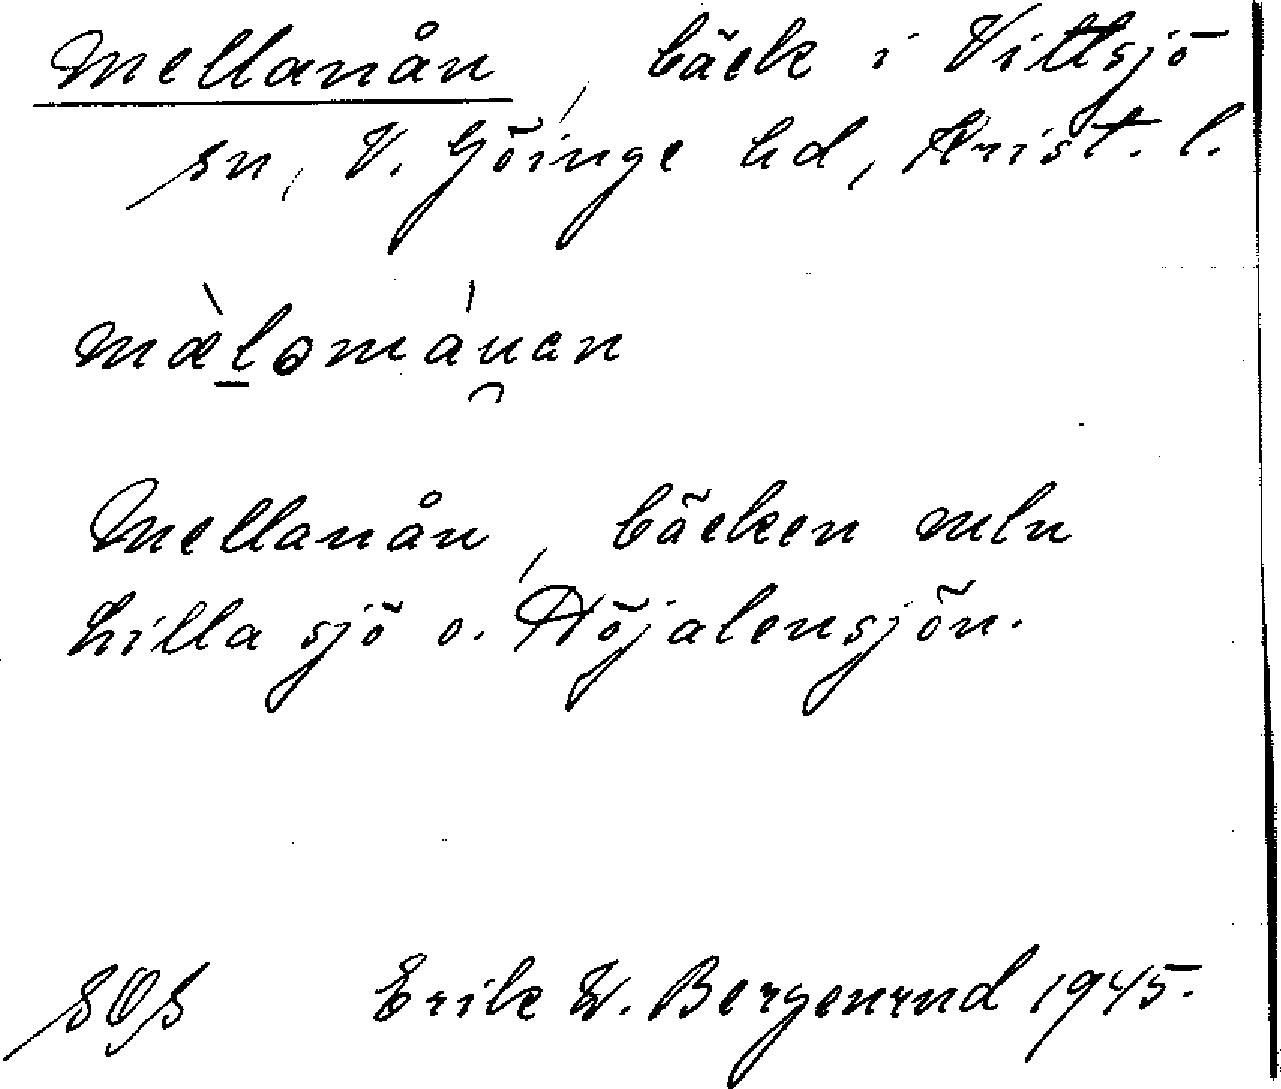 Mellanån, bäck i Vittsjö
sn, V. Göinge hd, Krist. l.
mæ̀ləmáu̯an
Mellanån, bäcken mln
Lilla sjö o. Höjalensjön.
SOS Erik W. Bergenrud 1945.